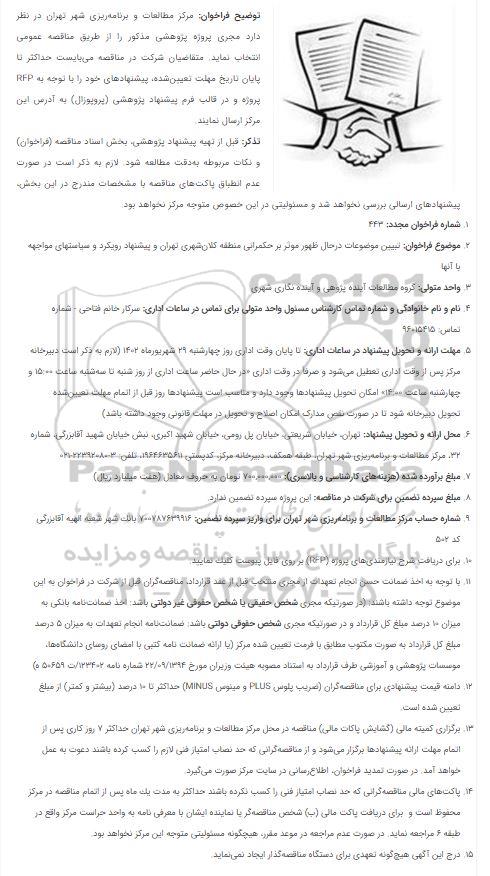 توضیح فراخوان: مرکز مطالعات و برنامه‌ریزی شهر تهران در نظر
دارد مجری پروژه پژوهشی مذکور را از طریق مناقصه عمومی
انتخاب نماید. متقاضیان شرکت در مناقصه می‌بایست حداکثر تا
پایان تاریخ مهلت تعیین‌شده، پیشنهادهای خود را با توجه به RFP
پروژه و در قالب فرم پیشنهاد پژوهشی (پروپوزال) به آدرس این
مرکز ارسال نمایند.
تذکر: قبل از تهیه پیشنهاد پژوهشی، بخش اسناد مناقصه (فراخوان)
و نکات مربوطه به‌دقت مطالعه شود. لازم به ذکر است در صورت
عدم انطباق پاکت‌های مناقصه با مشخصات مندرج در این بخش،
پیشنهادهای ارسالی بررسی نخواهد شد و مسئولیتی در این خصوص متوجه مرکز نخواهد بود.
۱. شماره فراخوان مجدد: ۴۴۳
۲. موضوع فراخوان: تبیین موضوعات درحال ظهور موثر بر حکمرانی منطقه کلان‌شهری تهران و پیشنهاد رویکرد و سیاستهای مواجهه
با آنها
۳. واحد متولی: گروه مطالعات آینده پژوهی و آینده نگاری شهری
۴. نام و نام خانوادگی و شماره تماس کارشناس مسئول واحد متولی برای تماس در ساعات اداری: سرکار خانم فتاحی - شماره
تماس: ۹۶۰۱۵۴۱۵
۵. مهلت ارائه و تحویل پیشنهاد در ساعات اداری: تا پایان وقت اداری روز چهارشنبه ۲۹ شهریورماه ۱۴۰۲ (لازم به ذکر است دبیرخانه
مرکز پس از وقت اداری تعطیل می‌شود و صرفا در وقت اداری «در حال حاضر ساعت اداری از روز شنبه تا سه‌شنبه ساعت ۱۵:۰۰ و
چهارشنبه ساعت ۱۴:۰۰» امکان تحویل پیشنهادها وجود دارد و مناسب است پیشنهادها روز قبل از اتمام مهلت تعیین‌شده
تحویل دبیرخانه شود تا در صورت نقص مدارک امکان اصلاح و تحویل در مهلت قانونی وجود داشته باشد)
۶. محل ارائه و تحویل پیشنهاد: تهران، خیابان شریعتی، خیابان پل رومی، خیابان شهید اکبری، نبش خیابان شهید آقابزرگی، شماره
۳۲، مرکز مطالعات و برنامه‌ریزی شهر تهران، طبقه همکف، دبیرخانه مرکز، کدپستی ۱۹۶۴۶۳۵۶۱۱، تلفن: ۳-۲۲۳۹۲۰۸۰-۰۲۱
۷. مبلغ برآورده شده (هزینه‌های کارشناسی و بالاسری): ۷۰۰,۰۰۰,۰۰۰ تومان به حروف معادل (هفت میلیارد ریال)
۸. مبلغ سپرده تضمین برای شرکت در مناقصه: این پروژه سپرده تضمین ندارد.
۹. شماره حساب مرکز مطالعات و برنامه‌ریزی شهر تهران برای واریز سپرده تضمین: ۷۰۰۷۸۷۶۳۹۹۱۶ بانک شهر شعبه الهیه آقابزرگی
کد ۵۰۲
۱۰. برای دریافت شرح نیازمندی‌های پروژه (RFP) بر روی فایل پیوست کلیک نمایید.
۱۱. با توجه به اخذ ضمانت حسن انجام تعهدات از مجری منتخب قبل از عقد قرارداد، مناقصه‌گران قبل از شرکت در فراخوان به این
موضوع توجه داشته باشند: (در صورتیکه مجری شخص حقیقی یا شخص حقوقی غیر دولتی باشد: اخذ ضمانت‌نامه بانکی به
میزان ۱۰ درصد مبلغ کل قرارداد و در صورتیکه مجری شخص حقوقی دولتی باشد: ضمانت‌نامه انجام تعهدات به میزان ۵ درصد
مبلغ کل قرارداد به صورت مکتوب مطابق با فرمت تعیین شده مرکز (یا ارائه ضمانت نامه کتبی با امضای روسای دانشگاه‌ها،
موسسات پژوهشی و آموزشی طرف قرارداد به استناد مصوبه هیئت وزیران مورخ ۲۲/۰۹/۱۳۹۴ شماره نامه ۱۲۳۴۰۲/ت ۵۰۶۵۹ ه)
۱۲. دامنه قیمت پیشنهادی برای مناقصه‌گران (ضریب پلوس PLUS و مینوس MINUS) حداکثر تا ۱۰ درصد (بیشتر و کمتر) از مبلغ
تعیین شده است.
۱۳. برگزاری کمیته مالی (گشایش پاکات مالی) مناقصه در محل مرکز مطالعات و برنامه‌ریزی شهر تهران حداکثر ۷ روز کاری پس از
اتمام مهلت ارائه پیشنهادها برگزار می‌شود و از مناقصه‌گرانی که حد نصاب امتیاز فنی لازم را کسب کرده باشند دعوت به عمل
خواهد آمد. در صورت تمدید فراخوان، اطلاع‌رسانی در سایت مرکز صورت می‌گیرد.
۱۴. پاکت‌های مالی مناقصه‌گرانی که حد نصاب امتیاز فنی را کسب نکرده باشند حداکثر به مدت یك ماه پس از اتمام مناقصه در مرکز
محفوظ است و برای دریافت پاکت مالی (ب) شخص مناقصه‌گر یا نماینده ایشان با معرفی نامه به واحد حراست مرکز واقع در
طبقه ۶ مراجعه نماید. در صورت عدم مراجعه در موعد مقرر، هیچگونه مسئولیتی متوجه این مرکز نخواهد بود.
۱۵. درج این آگهی هیچ‌گونه تعهدی برای دستگاه مناقصه‌گذار ایجاد نمی‌نماید.